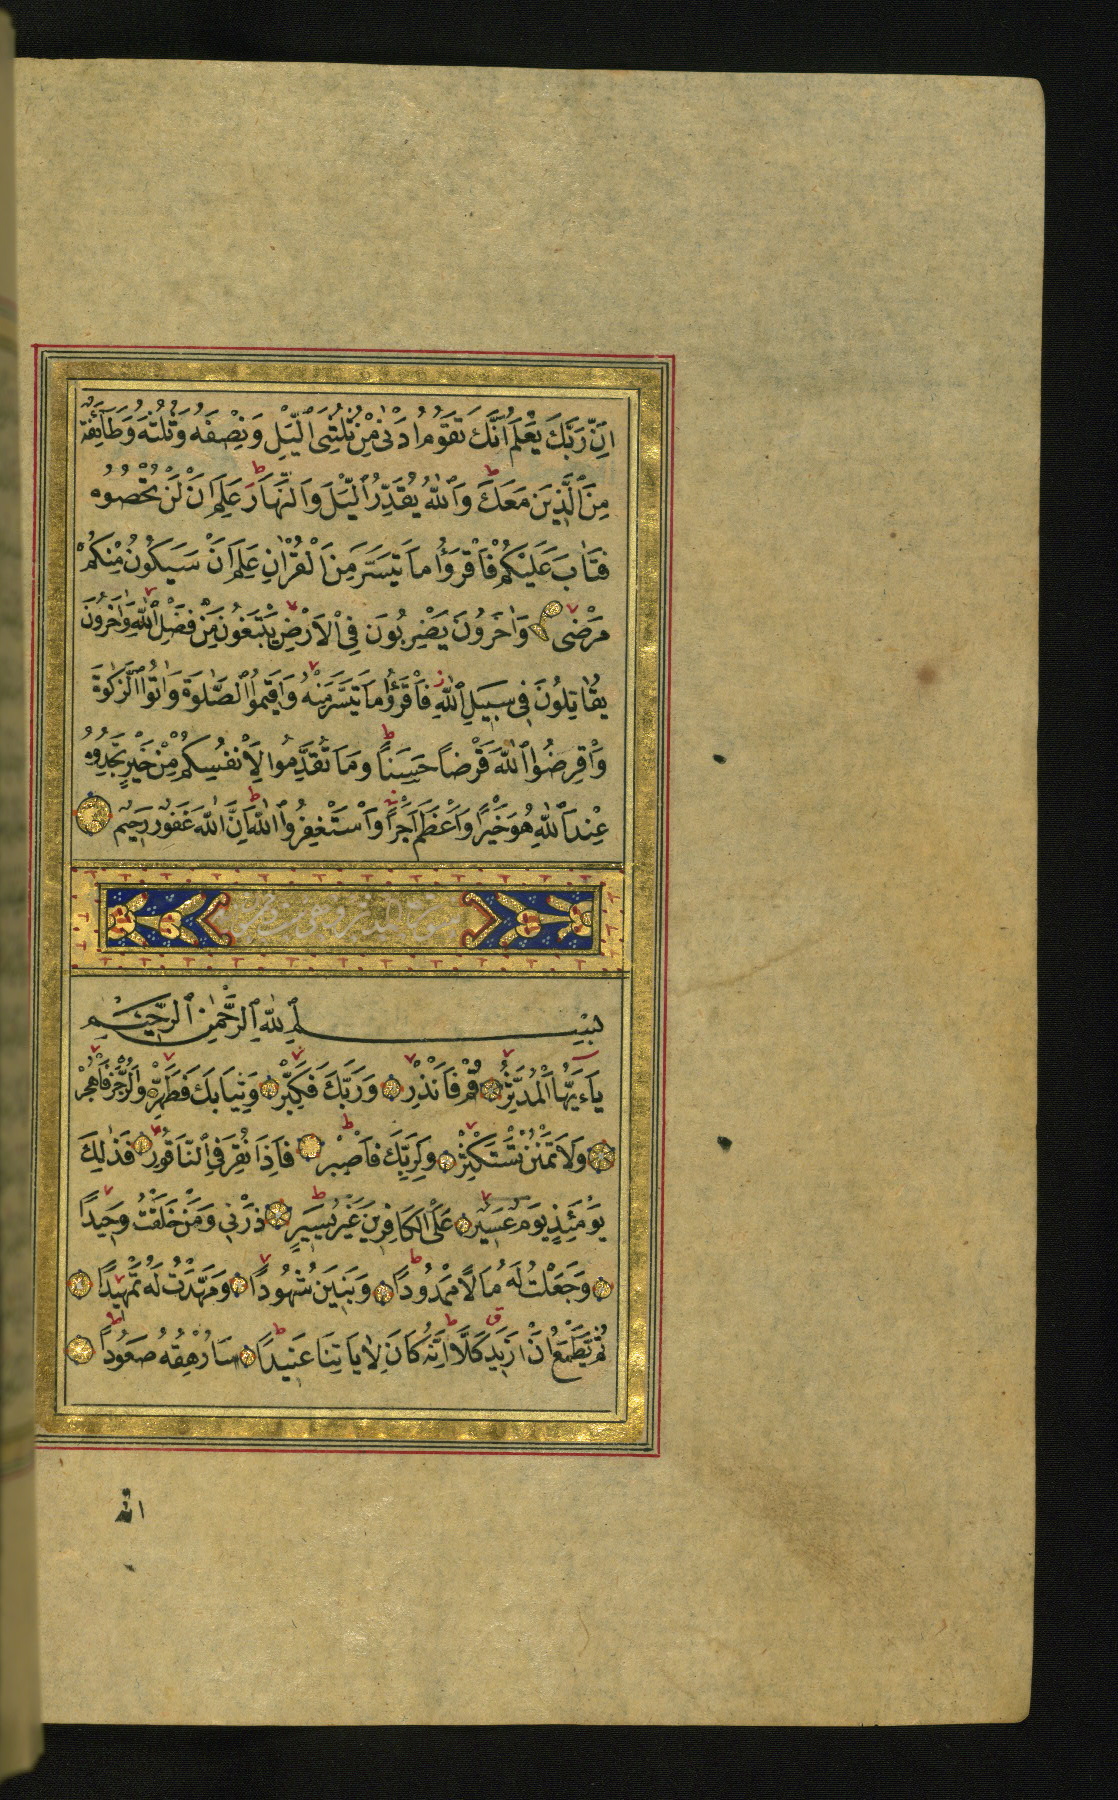 اِنَّ رَبَّكَ يَعْلَمُ اَنَّكَ تَقُومُ اَدْنٰى مِنْ ثُلُثَىِ الَّيْلِ وَنِصْفَهُ وَثُلُثَهُ وَطَآئِفَةٌ
مِنَ الَّذِينَ مَعَكَ وَاللّٰهُ يُقَدِّرُ الَّيْلَ وَالنَّهَارَ عَلِمَ اَنْ لَنْ تُحْصُوهُ
فَتَابَ عَلَيْكُمْ فَاقْرَؤُا مَا تَيَسَّرَ مِنَ الْقُرْاٰنِ عَلِمَ اَنْ سَيَكُونُ مِنْكُمْ
مَرْضٰى وَاٰخَرُونَ يَضْرِبُونَ فِي الْاَرْضِ يَبْتَغُونَ مِنْ فَضْلِ اللّٰهِ وَاٰخَرُونَ
يُقَاتِلُونَ فِي سَبِيلِ اللّٰهِ فَاقْرَؤُا مَا تَيَسَّرَ مِنْهُ وَاَقِيمُوا الصَّلٰوةَ وَاٰتُوا الزَّكٰوةَ
وَاَقْرِضُوا اللّٰهَ قَرْضًا حَسَنًا وَمَا تُقَدِّمُوا لِاَنْفُسِكُمْ مِنْ خَيْرٍ تَجِدُوهُ
عِنْدَ اللّٰهِ هُوَ خَيْرًا وَاَعْظَمَ اَجْرًا وَاسْتَغْفِرُوا اللّٰهَ اِنَّ اللّٰهَ غَفُورٌ رَحِيمٌ
سورة المدثر
بِسْمِ اللّٰهِ الرَّحْمٰنِ الرَّحِيمِ
يَاءَيُّهَا الْمُدَّثِّرُ قُمْ فَاَنْذِرْ وَرَبَّكَ فَكَبِّرْ وَثِيَابَكَ فَطَهِّرْ وَالرُّجْزَ فَاهْجُرْ
وَلَا تَمْنُنْ تَسْتَكْثِرُ وَلِرَبِّكَ فَاصْبِرْ فَاِذَا نُقِرَ فِي النَّاقُورِ فَذٰلِكَ
يَوْمَئِذٍ يَوْمٌ عَسِيرٌ عَلَى الْكَافِرِينَ غَيْرُ يَسِيرٍ ذَرْنِي وَمَنْ خَلَقْتُ وَحِيدًا
وَجَعَلْتُ لَهُ مَالًا مَمْدُودًا وَبَنِينَ شُهُودًا وَمَهَّدْتُ لَهُ تَمْهِيدًا
ثُمَّ يَطْمَعُ اَنْ اَزِيدَ كَلَّا اِنَّهُ كَانَ لِاٰيَاتِنَا عَنِيدًا سَاُرْهِقُهُ صَعُودًا
انه